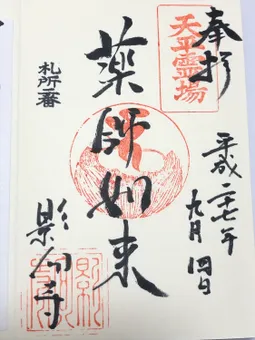 奉拝
天平霊場
平成二七年
九月四日
薬師如来
札所一番
影向寺